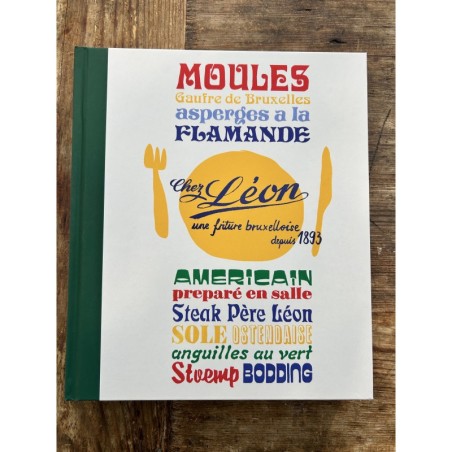 MOULES
Gaufre de Bruxelles
asperges a la
FLAMANDE
Chez Léon
une friture bruxelloise
depuis 1893
AMERICAIN
preparé en salle
Steak Père Léon
SOLE OSTENDAISE
anguilles au vert
Stoemp BODDING